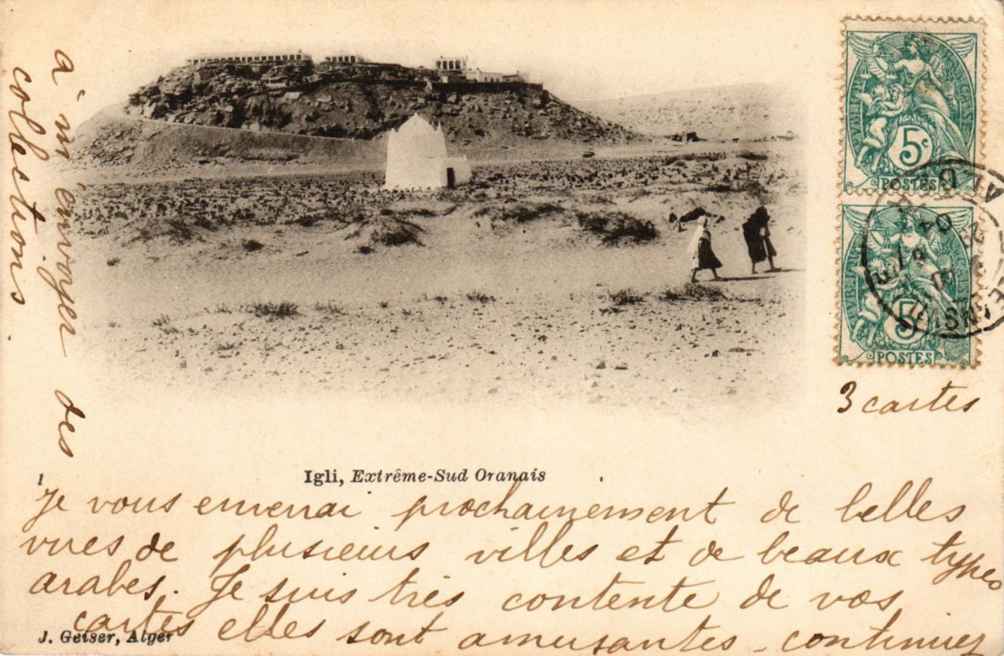 5c
POSTES
5c
POSTES
3 cartes
1
Igli, Extrême-Sud Oranais
Je vous enverrai prochainement de belles
vues de plusieurs villes et de beaux types
arabes. Je suis très contente de vos
cartes elles sont amusantes - continuez
à m'envoyer des
collections
J. Geiser, Alger